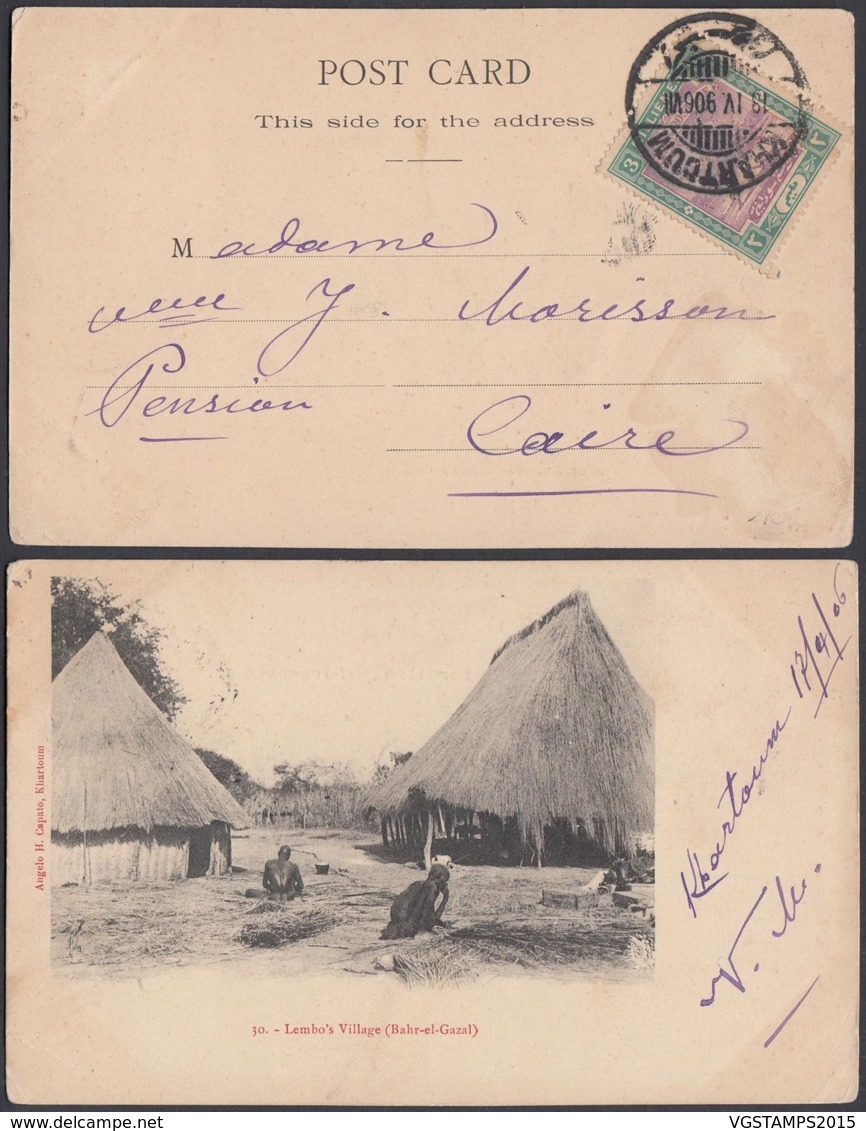 POST CARD
This side for the address
KHARTOUM
18 IV 906 VII
3
Madame
Veuve J. Morisson
Pension
Caire
Angelo H. Capato, Khartoum
30. - Lembo's Village (Bahr-el-Gazal)
Khartoum 17/4/06
V. M.
VGSTAMPS2015